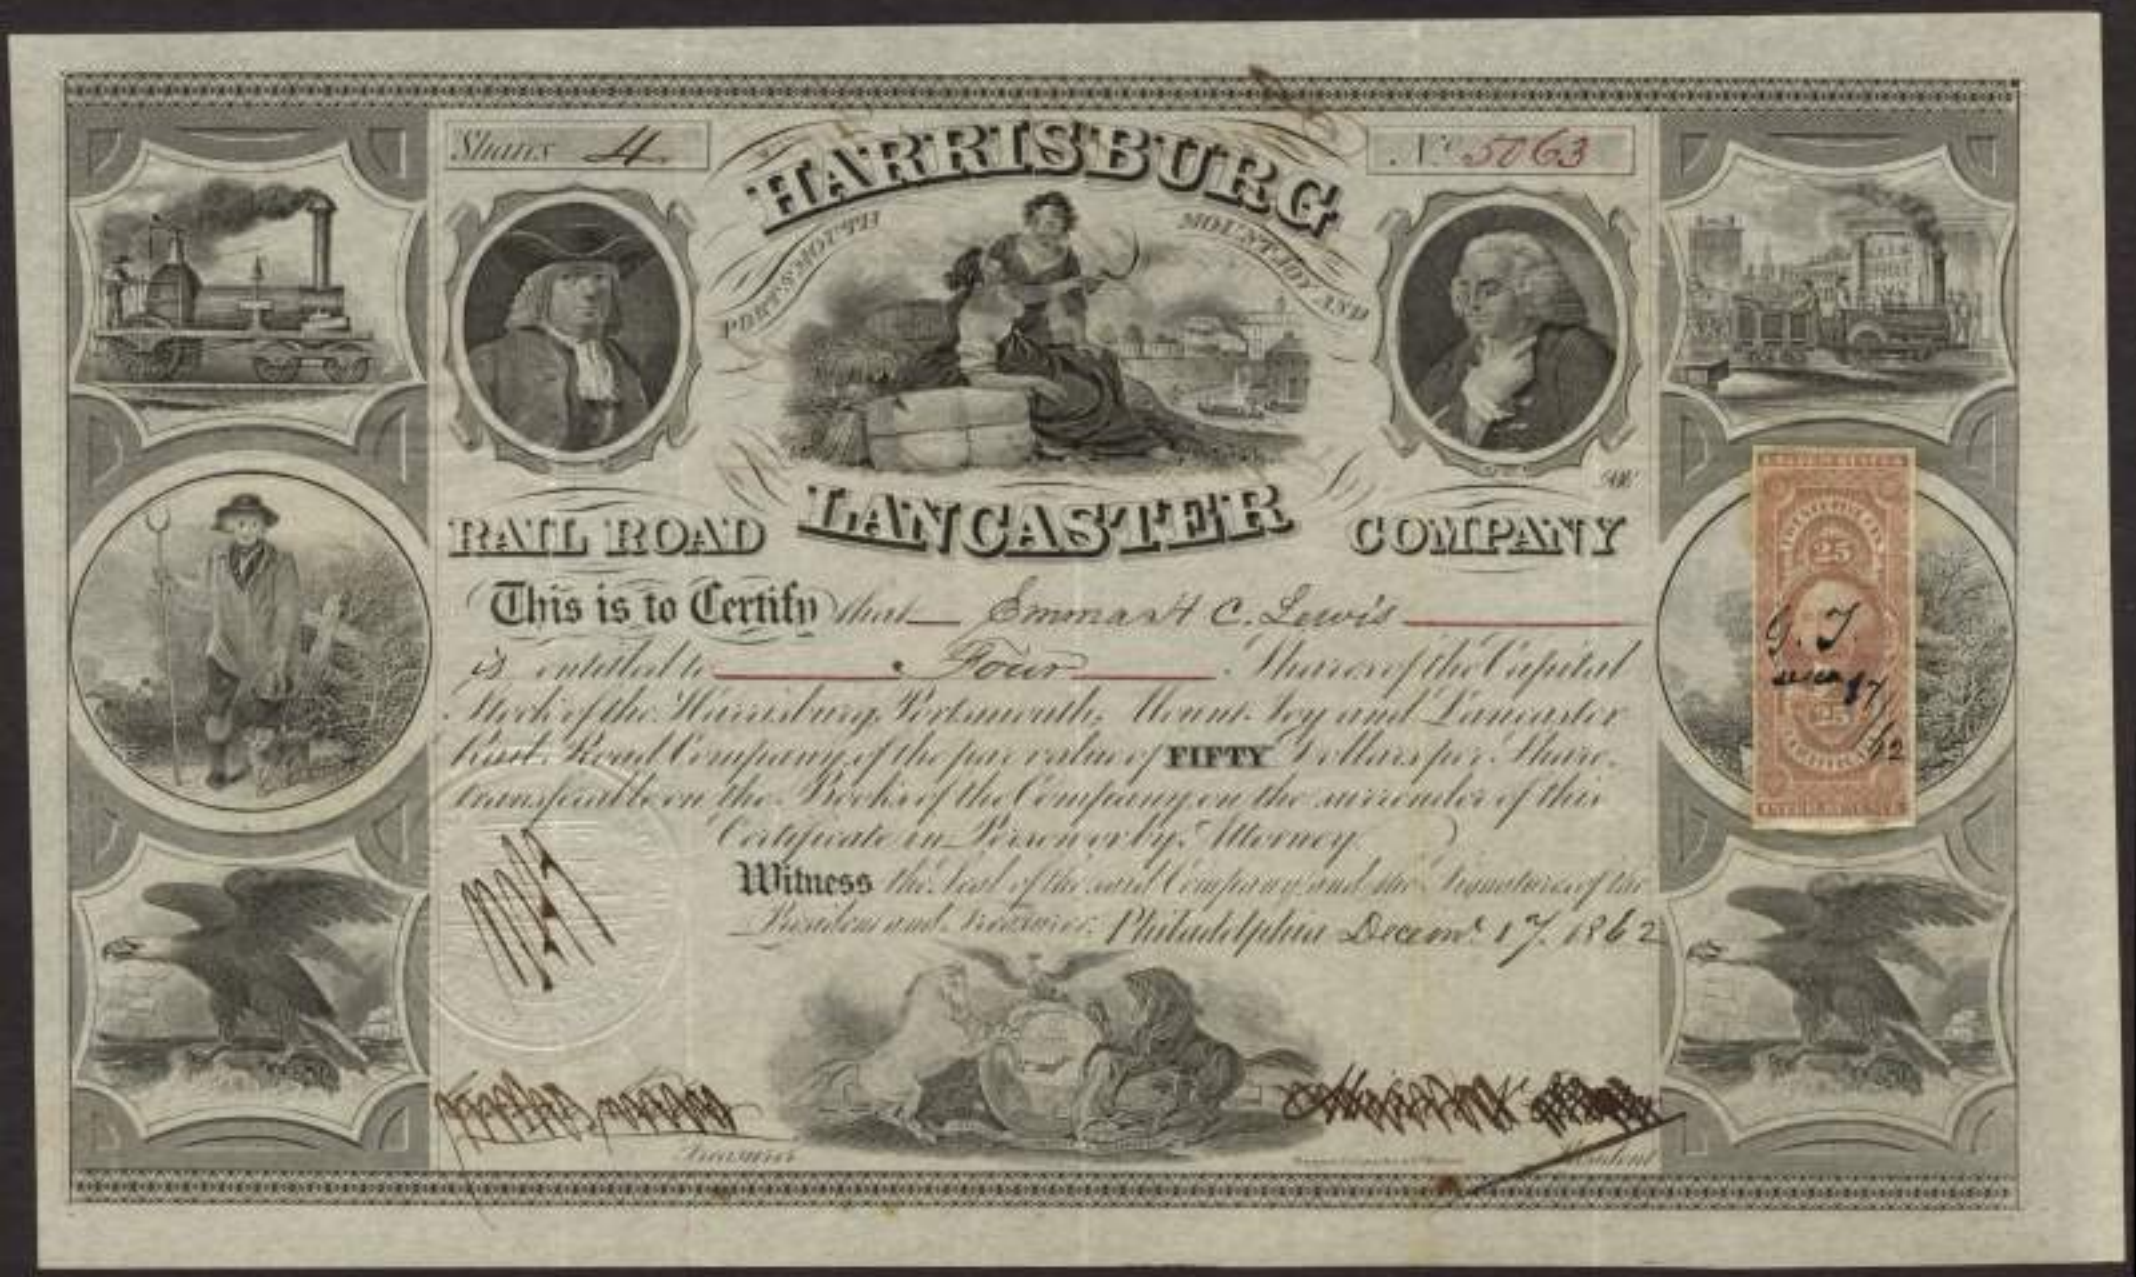 Shares 4.
No. 5063
HARRISBURG
PORTSMOUTH MOUNT JOY AND
LANCASTER
RAIL ROAD COMPANY
This is to Certify that Emma H C. Lewis
is entitled to Four Shares of the Capital
Stock of the Harrisburg, Portsmouth, Mount Joy and Lancaster
Rail Road Company, of the par value of FIFTY Dollars per Share.
transferable on the Books of the Company on the surrender of this
Certificate in Person or by Attorney.
Witness the Seal of the said Company and the Signatures of the
President and Treasurer. Philadelphia Decem. 17. 1862
Treasurer
President
25
G. T.
17
25
62